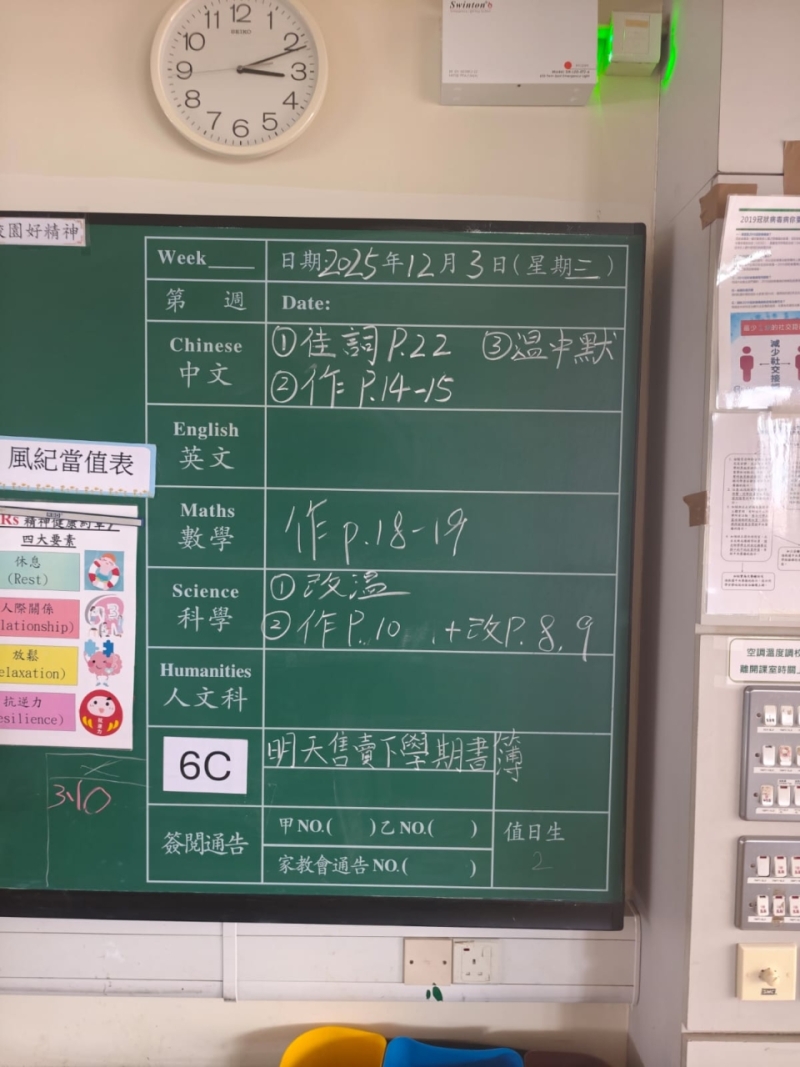 11 12 1
10 2
9 3
8 4
7 6 5
SEIKO
Swinton
校園好精神
Week____ 日期2025年12月3日(星期三)
第 週 Date:
Chinese 中文 ①佳詞P.22 ③溫中默
②作P.14-15
English 英文
Maths 數學 作p.18-19
Science 科學 ①改溫
②作P.10 .+改P.8,9
Humanities 人文科
6C 明天售賣下學期書簿
簽閱通告 甲NO.( )乙NO.( ) 值日生
家教會通告NO.( ) 2
風紀當值表
四大要素
休息
(Rest)
人際關係
lationship)
放鬆
elaxation)
抗逆力
esilience)
3:10
減少社交接
空調溫度調校
離開課室時關